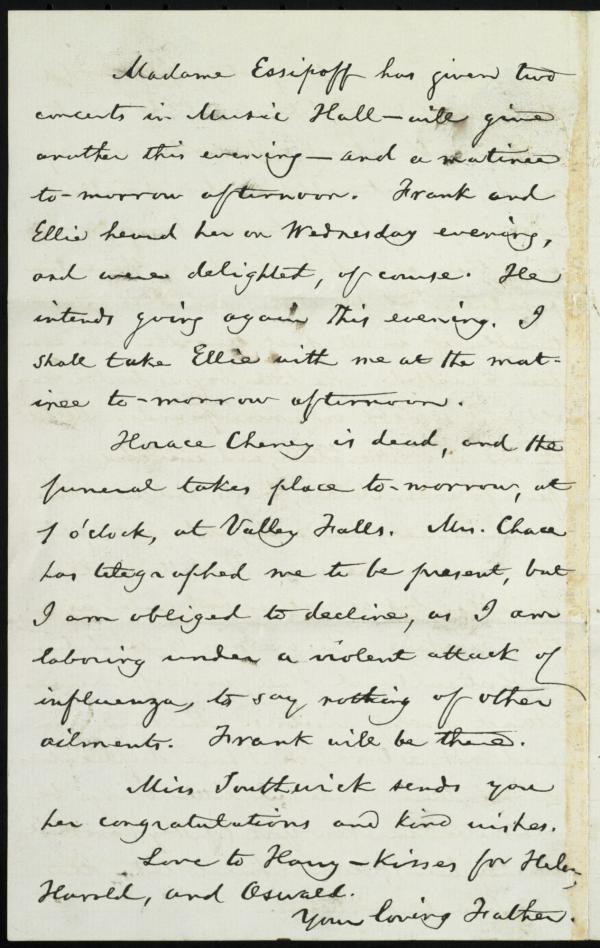 Madame Essipoff has given two
concerts in Music Hall—will give
another this evening—and a matinee
to-morrow afternoon. Frank and
Ellie heard her on Wednesday evening,
and were delighted, of course. He
intends going again this evening. I
shall take Ellie with me at the mat-
inee to-morrow afternoon.
Horace Cheney is dead, and the
funeral takes place to-morrow, at
1 o'clock, at Valley Falls. Mrs. Chace
has telegraphed me to be present, but
I am obliged to decline, as I am
laboring under a violent attack of
influenza, to say nothing of other
ailments. Frank will be there.
Miss Southwick sends you
her congratulations and kind wishes.
Love to Harry—Kisses for Helen,
Harold, and Oswald.
Your loving Father.